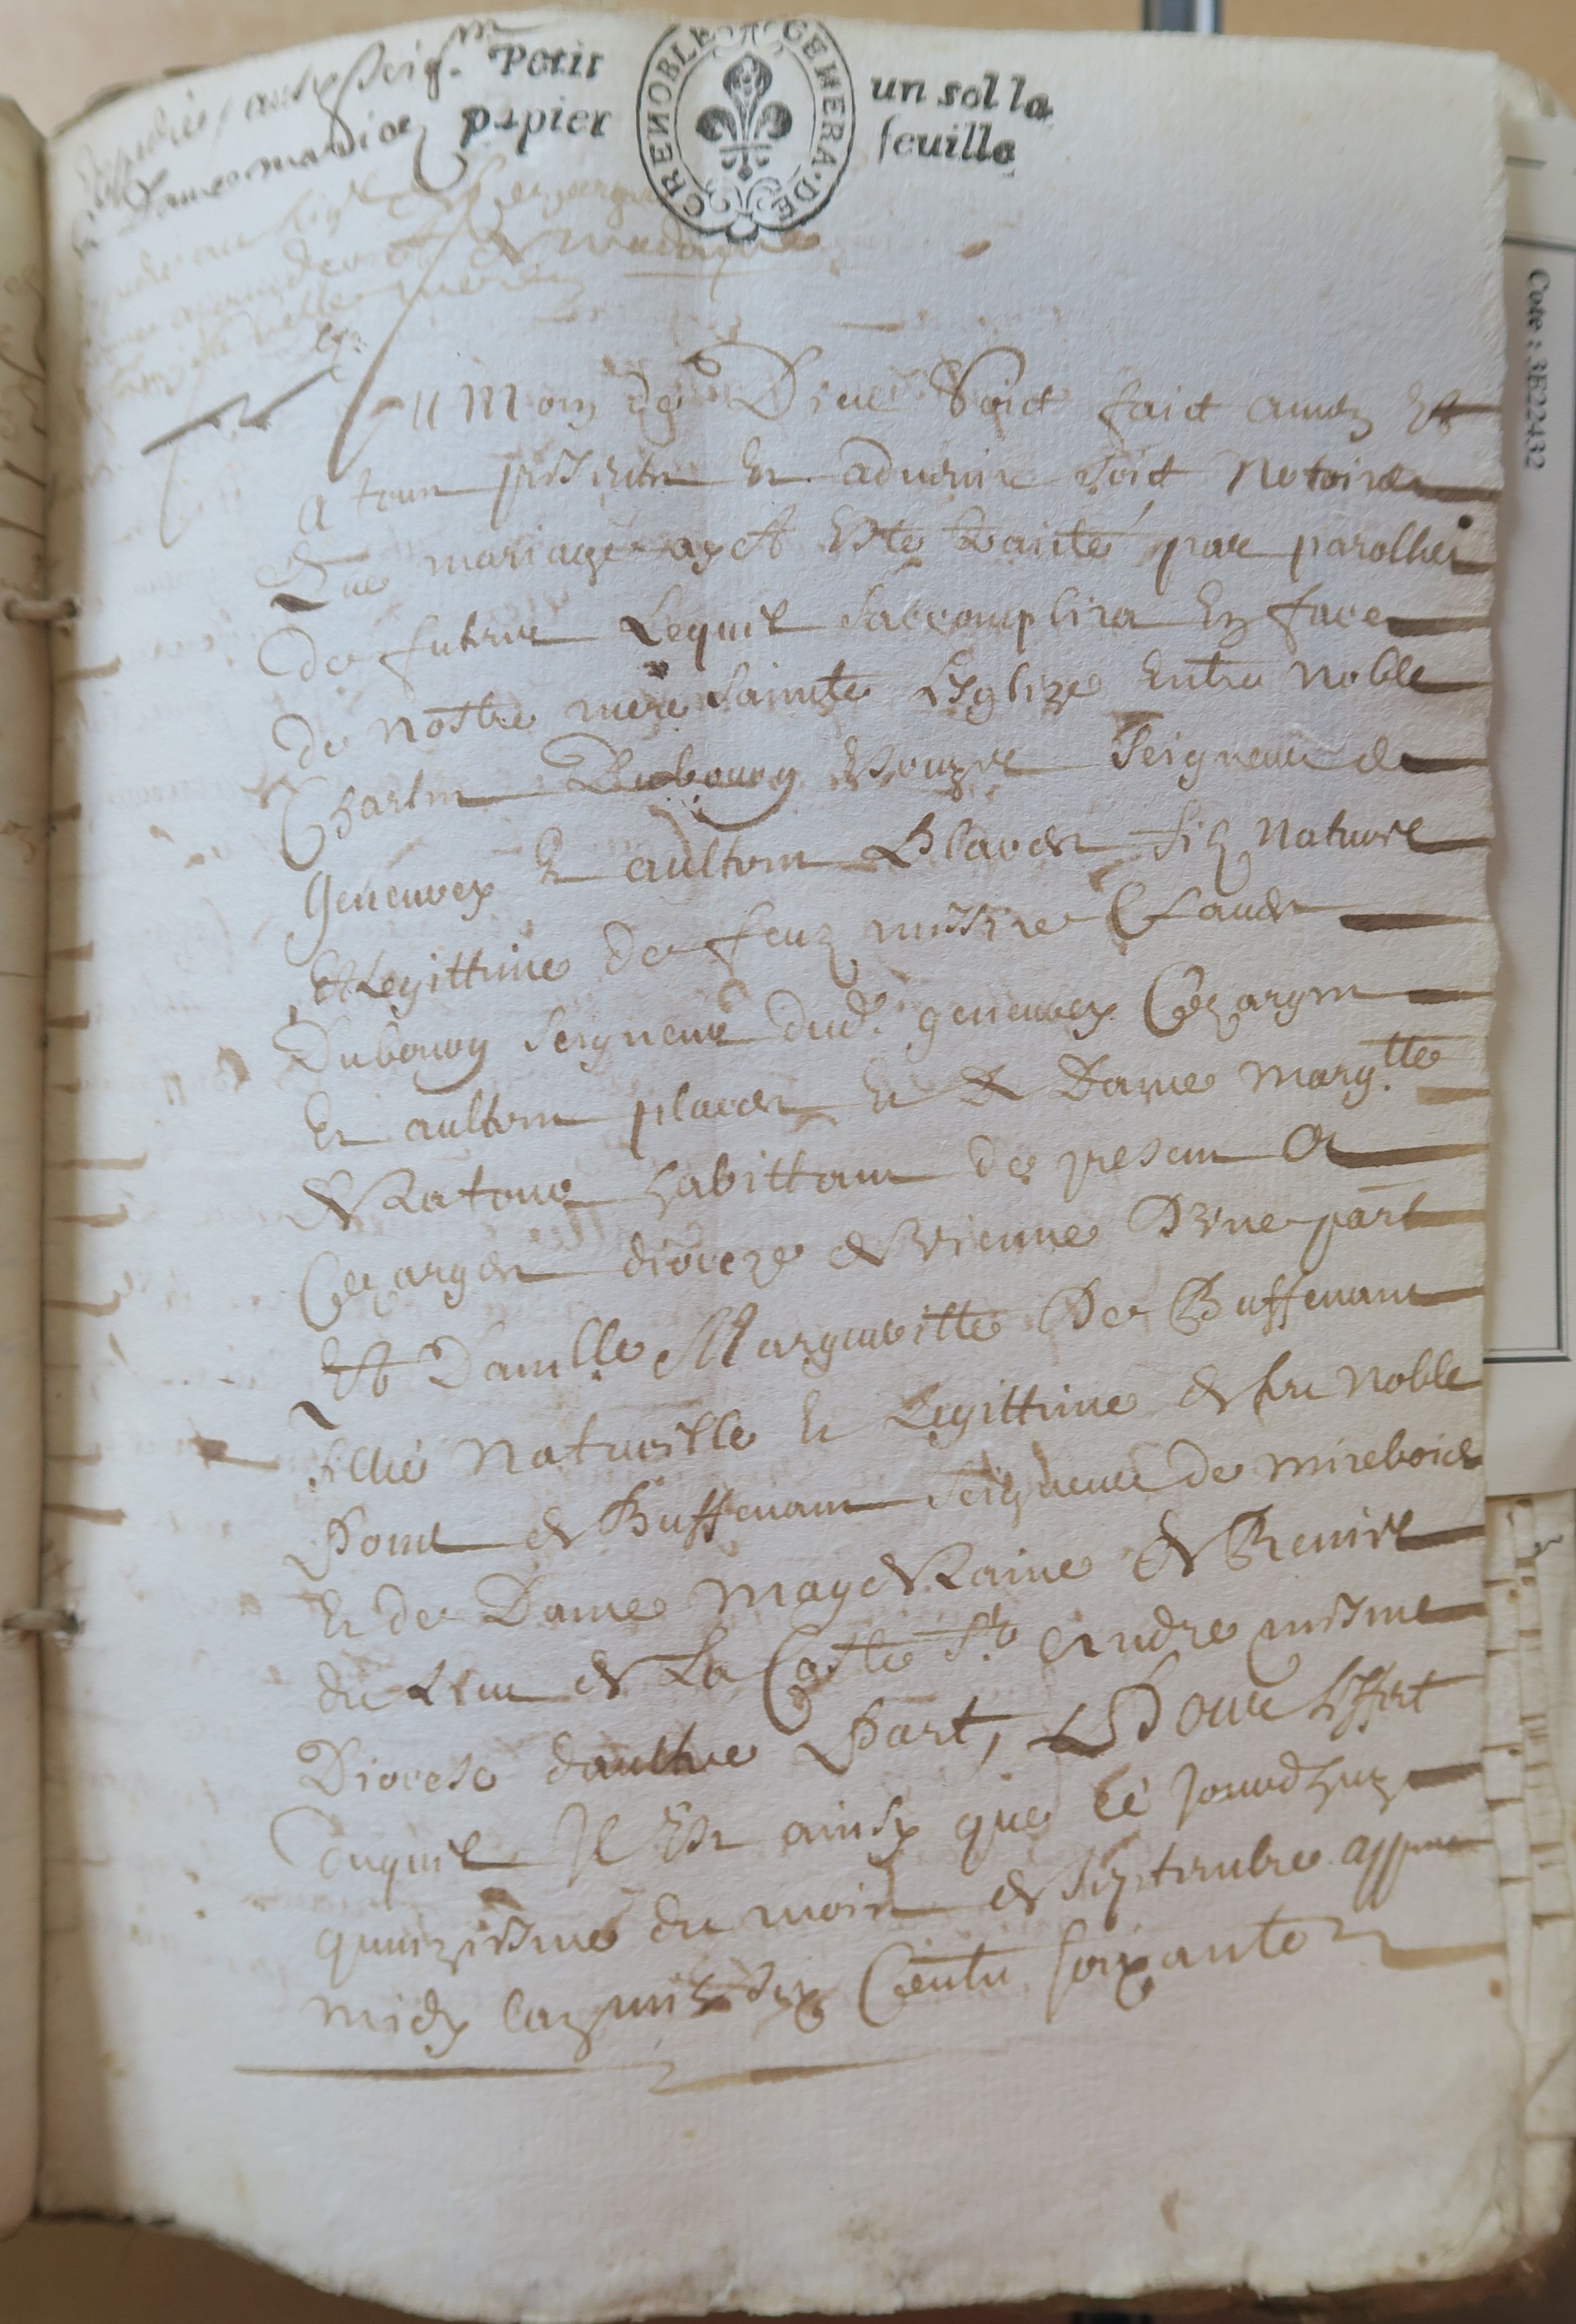 Petit
papier
GRENOBLE GENERA. DE
un sol la
feuille
Expedié / aux seig.r
Dames mariez
Au Nom de Dieu Soict faict amen Et
a tous présents Et advenir soit Notoire
Que mariage ayet Esté traitté par parolles
De futeur Lequel saccomplira En face
de nostre mere Saincte Esglize Entre Noble
Charles Dubourg Escuyer Seigneur de
Geneuvex Et aultres places filz Naturel
Et Legittime de feuz messire Claude
Dubourg Seigneur dud. geneuvex Cezarges
Et aultres places Et de Dame Marg.tte
de Ratone habittant de present A
Cezarges dioceze de Vienne D'vne part
Et Damlle. Margueritte De Buffevant
fillie Naturelle Et Legittime de feu Noble
Pons de Buffevant Seigneur de mirebois
Et de Dame Magdelaine de Revirel
du Lieu de La Coste St. Andre mesme
Diocese daultre Part, Et Pour Effect
duquel Il Est ainsy que ce Jourdhuy
quinziesme du mois de Septembre appres
midy Lan mil Six Centz soixante
Cote : 3E22432